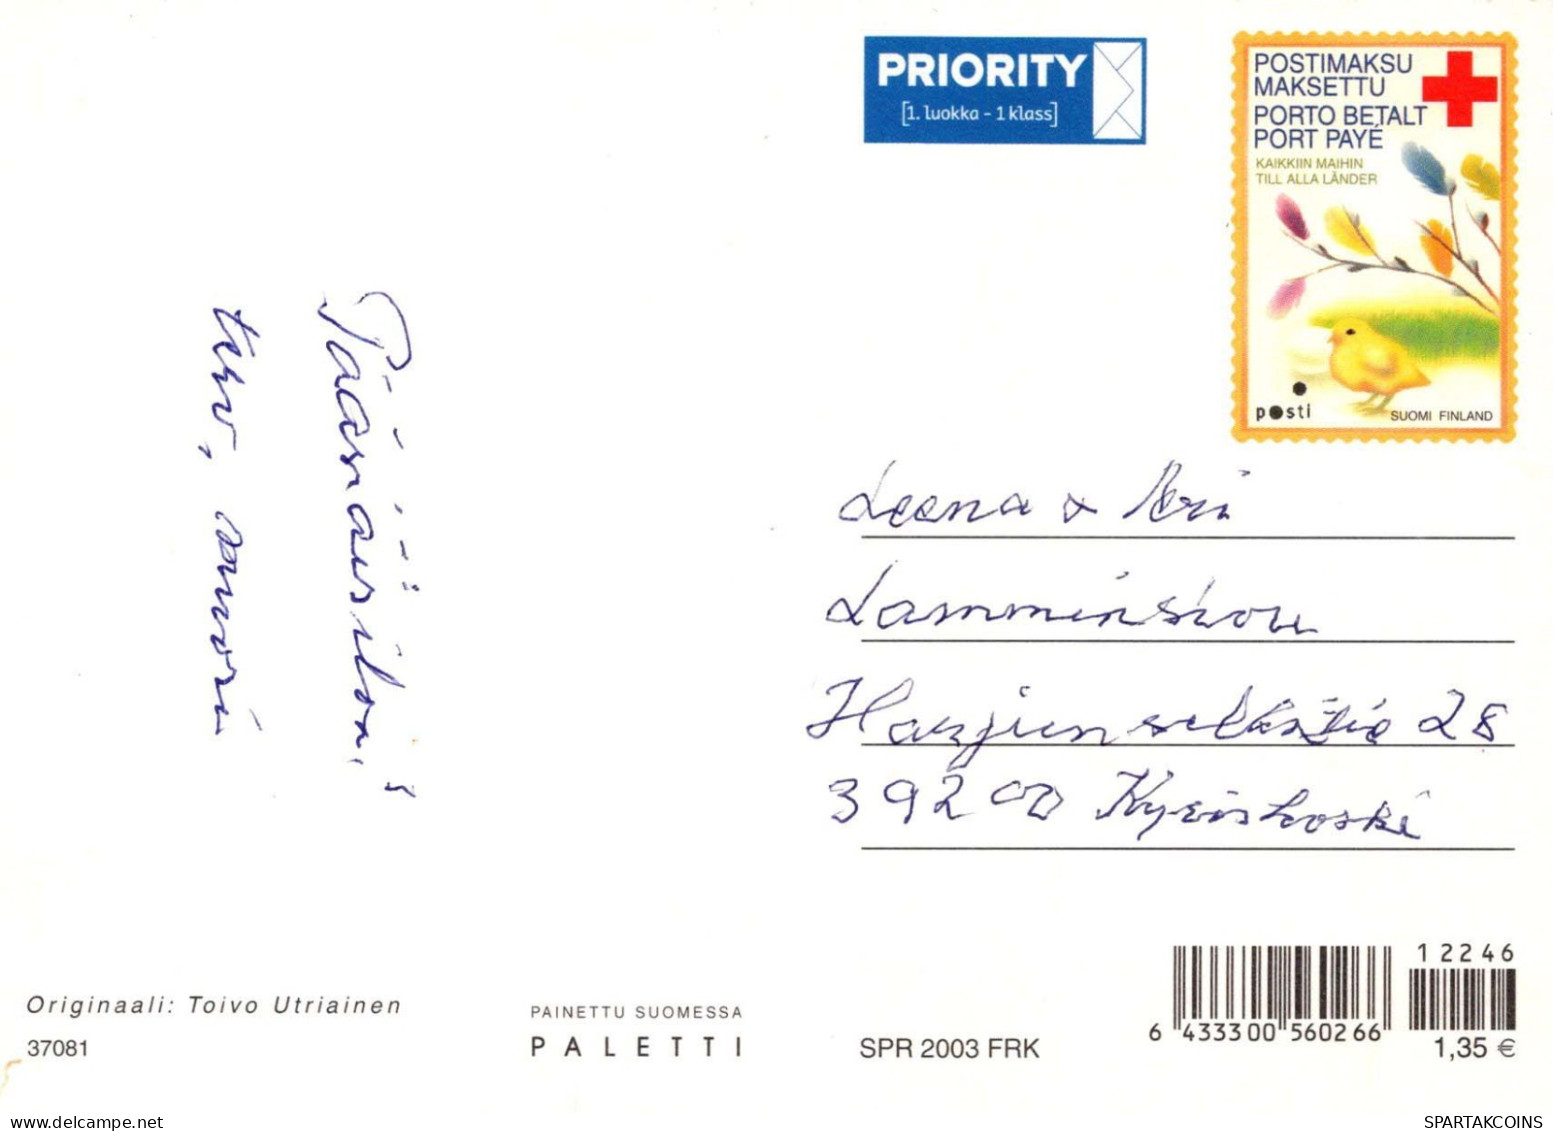 PRIORITY
[1. luokka - 1 klass]
POSTIMAKSU
MAKSETTU
PORTO BETALT
PORT PAYÉ
KAIKKIIN MAIHIN
TILL ALLA LÄNDER
posti
SUOMI FINLAND
Pääsiäisiloa!
terv,
Leena &
Harjunselkätie 28
39200 Kyröskoski
Originaali: Toivo Utriainen
37081
PAINETTU SUOMESSA
PALETTI
SPR 2003 FRK
12246
6 433300 560266
1,35 €
SPARTAKCOINS
delcampe.net